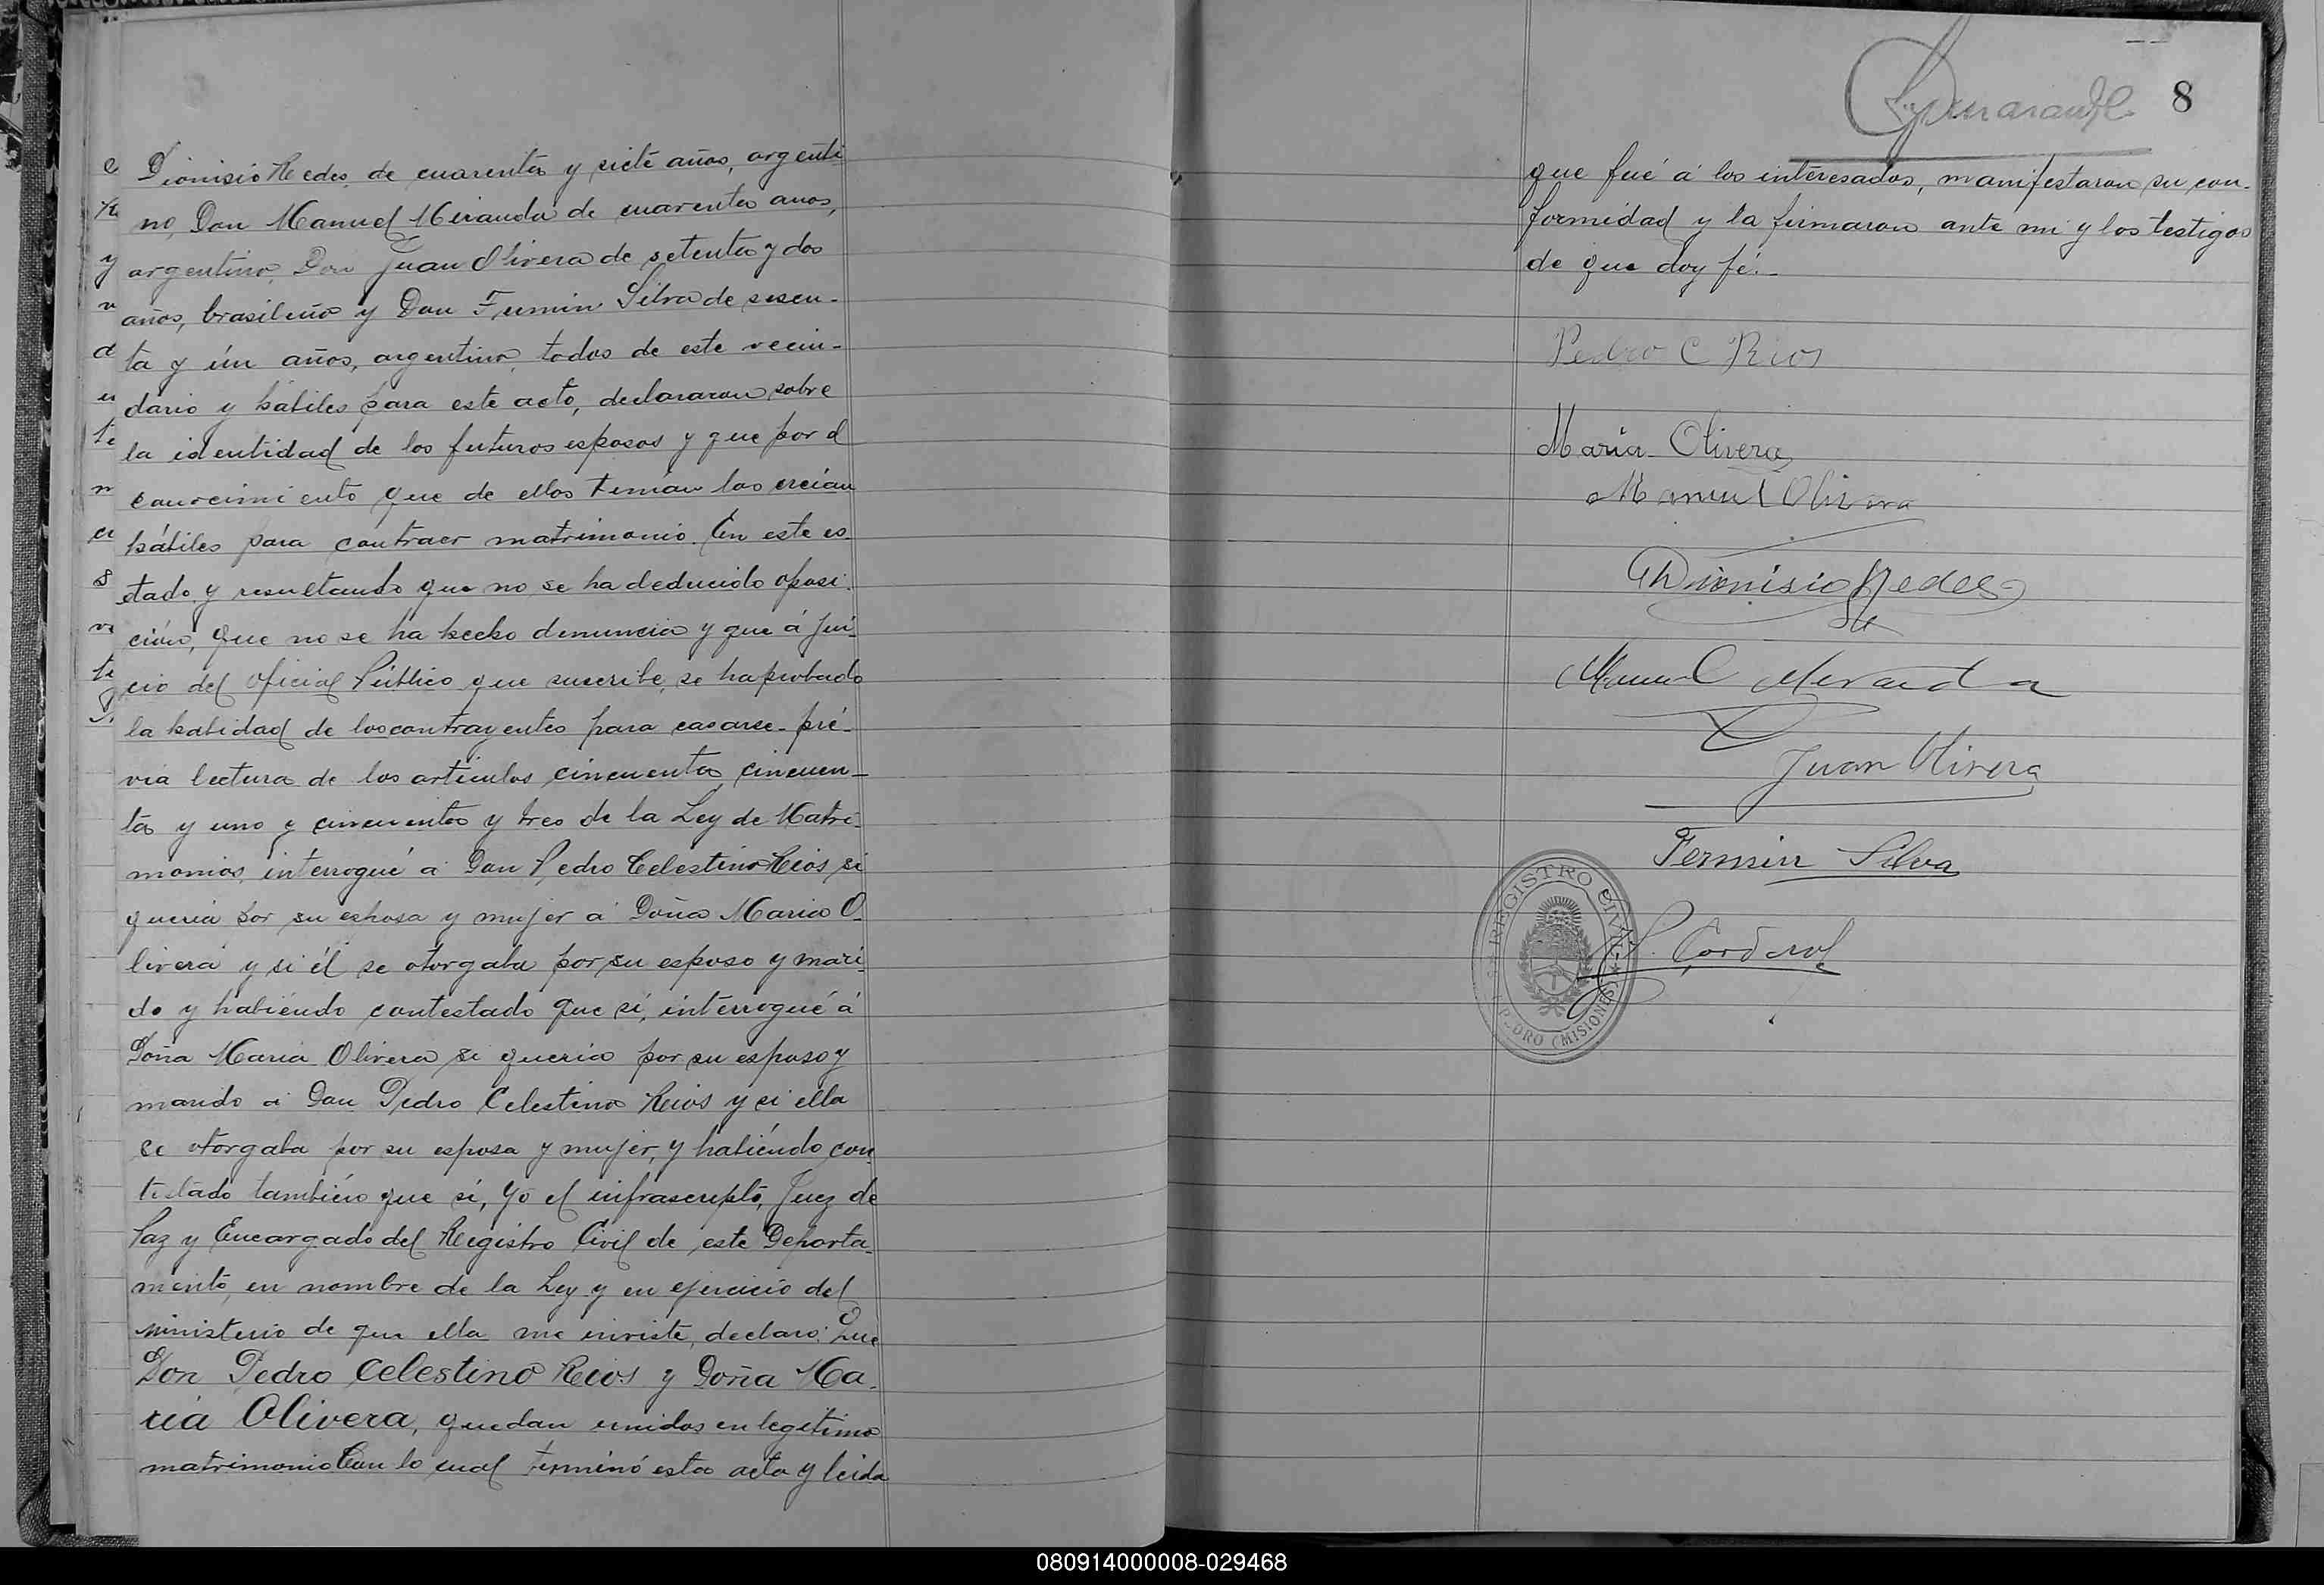 Dionisio Redes, de cuarenta y siete años, argenti
no, Don Manuel Miranda de cuarenta anos,
argentino, Don Juan Olivera de setenta y dos
años, brasileño y Don Fermin Silva de sesen-
ta y ún años, argentino, todos de este vecin-
dario y hábiles para este acto, declararon sobre
la identidad de los futuros esposos y que por el
conocimiento que de ellos tenían los creían
hábiles para contraer matrimonio. En este es-
tado, y resultando que no se ha deducido oposi-
ción, que no se ha hecho denuncia y que á jui-
cio del oficial Público que suscribe, se ha probado
la habidad de los contrayentes para casarse, pré-
via lectura de los artículos cincuenta, cincuen-
ta y uno y cincuenta y tres de la Ley de Matri-
monios, interrogué á Don Pedro Celestino Rios, si
quería por su esposa y mujer á Doña Maria O-
livera y si él se otorgaba por su esposo y mari-
do y habiéndo contestado que sí, interrogué á
Doña Maria Olivera si queria por su esposo y
marido á Don Pedro Celestino Rios y si ella
se otorgaba por su esposa y mujer, y habiéndo con
testado también que sí, Yo el infrascripto, Juez de
Paz y Encargado del Registro Civil de este Departa-
mento, en nombre de la Ley y en ejercicio del
ministerio de que ella me inviste, declaro: Que
Don Pedro Celestino Rios y Doña Ma-
ria Olivera, quedan unidos en legítimo
matrimonio Con lo cual terminó esta acta y leida
8
que fué á los interesados, manifestaron su con-
formidad y la firmaron ante mi y los testigos
de que doy fé.
Pedro C Rios
Maria Olivera
Manuel Olivera
Dionisio Redes
Manuel Miranda
Juan Olivera
Fermin Silva
REGISTRO CIVIL
PEDRO (MISIONES)
080914000008-029468